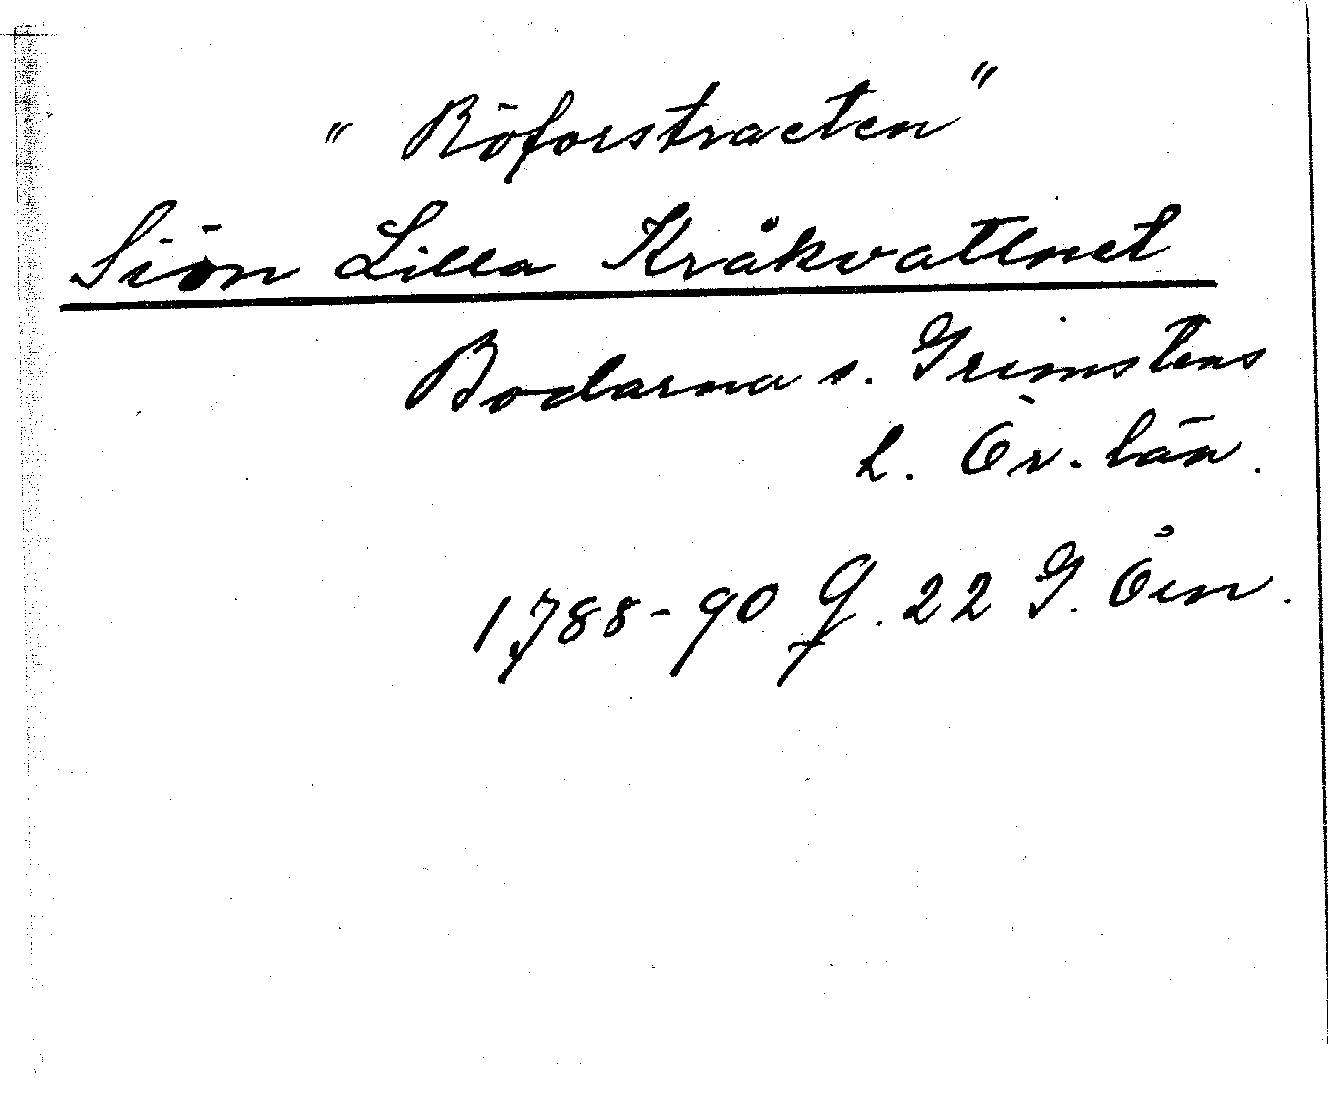 "Röforstracten"
Siön Lilla Kråkvattnet
Bodarna s. Grimstens
h. Ör. län.
1788-90 f. 22 G. Öin.